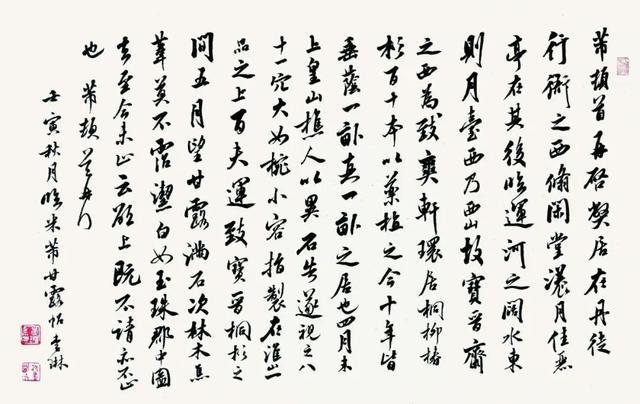 芾頓首再啓弊居在丹徒
行衙之西翛閑堂漾月佳麗
亭在其後臨運河之闊水東
則月臺西乃西山故寶晉齋
之西為致爽軒環居桐柳椿
杉百十本以藥植之今十年皆
垂蔭一畝真一畝之居也四月末
上皇山樵人以異石告遂視之八
十一穴大如椀小容指製在淮山一
品之上百夫運致寶晉桐杉之
間五月望甘露滿石次林木焦
葦莫不霑潔白如玉珠郡中圖
去至今未止云欲上既不請亦不止
也 芾頓首再拜
壬寅秋月臨米芾甘露帖 李琳